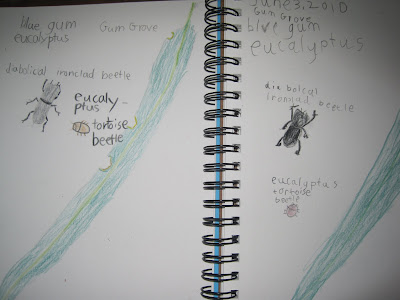 blue gum
eucalyptus
Gum Grove
diabolical ironclad beetle
eucaly-
ptus
tortoise
beetle
June 3, 2010
Gum Grove
blue gum
eucalyptuis
diabolcal
ironnail beetle
eucalyptus
tortoise
beetle